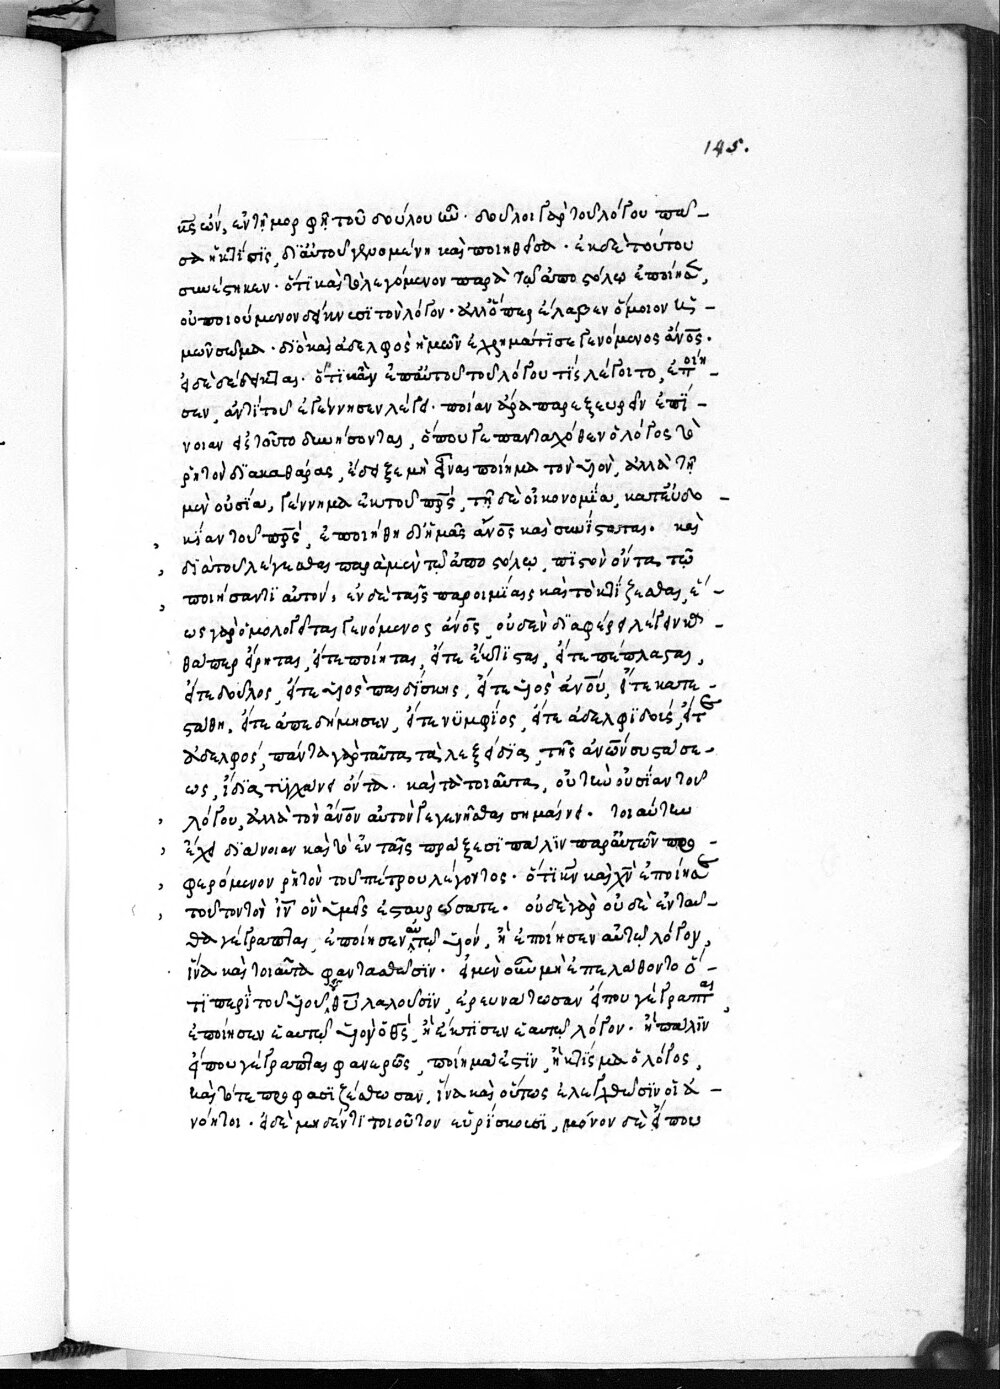 145.
κ̅ς ὢν, ἐν τῇ μορφῇ τοῦ δούλου ἦν· δοῦλοι γὰρ τοῦ λόγου πᾶσ–
σα ἡ κτίσις, δι' αὐτοῦ γενομένη καὶ ποιηθεῖσα. ἐκ δὲ τούτου
συνέστηκεν· ὅτι καὶ τὸ λεγόμενον παρὰ τῷ ἀποστόλῳ ἐποίησεν,
οὐ ποιούμενον δείκνεσι τὸν λόγον· ἀλλ' ὅπερ ἔλαβεν ὅμοιον ἡ–
μῶν σῶμα· διὸ καὶ ἀδελφὸς ἡμῶν ἐχρημάτισε γενόμενος ἄνο̅ς.
εἰ δὲ δέδεικται· ὅτι κἂν ἐπ' αὐτοῦ τοῦ λόγου τίς λέγοι τὸ, ἐποίη–
σεν, ἀντὶ τοῦ ἐγέννησεν λέγει· ποίαν ἄρα παρεξευρεῖν ἐπί–
νοιαν εἰς τοῦτο δυνήσονται, ὅπου γε πανταχόθεν ὁ λόγος τὸ
ῥητὸν διακαθάρας, ἔδειξε μὴ εἶναι ποίημα τὸν υἱὸν, ἀλλὰ τῇ
μὲν οὐσίᾳ, γέννημα ἐκ τοῦ πρ̅ς, τῇ δὲ οἰκονομίᾳ, κατ' εὐδο–
κίαν τοῦ πρ̅ς, ἐποιήθη δι' ἡμᾶς ἄνο̅ς καὶ συνίσταται. καὶ
διὰ τοῦ λέγεσθαι παρὰ μὲν τῷ ἀποστόλῳ, πιστὸν ὄντα τῷ
ποιήσαντι αὐτόν· ἐν δὲ ταῖς παροιμίαις καὶ τὸ κτίζεσθαι, ἕ–
ως γὰρ ὁμολογεῖται γενόμενος ἄνο̅ς, οὐδὲν διαφέρει λέγειν κα–
θάπερ εἴρηται, εἴτε ποίηται, εἴτε ἔκτισται, εἴτε πέπλασται,
εἴτε δοῦλος, εἴτε υἱὸς παιδίσκης, εἴτε υἱὸς ἀνο̅υ, εἴτε κατε–
στάθη, εἴτε ἀπεδήμησεν, εἴτε νυμφίος, εἴτε ἀδελφιδοῦς, εἴτε
ἀδελφὸς, πάντα γὰρ ταῦτα τὰ λεξείδια, τῆς ἀνω̅ν συστάσε–
ως, ἴδια τυγχάνει ὄντα· καὶ τὰ τοιαῦτα, οὐ τὴν οὐσίαν τοῦ
λόγου, ἀλλὰ τὸν ἄνο̅ν αὐτὸν γεγενῆσθαι σημαίνει. τοιαύτην
ἔχει διάνοιαν καὶ τὸ ἐν ταῖς πράξεσι πάλιν παρ' αὐτῶν προ–
φερόμενον ῥητὸν τοῦ πέτρου λέγοντος· ὅτι κ̅ν καὶ χ̅ν ἐποίησεν
τοῦτον τὸν ι̅ν ὃν ὑμεῖς ἐσταυρώσατε. οὐδὲ γὰρ οὐδὲ ἐνταῦ–
θα γέγραπται, ἐποίησεν αὑτῷ υἱόν, ἢ ἐποίησεν αὑτῷ λόγον,
ἵνα καὶ τοιαῦτα φαντασθῶσιν. εἰ μὲν οὖν μὴ ἐπελάθοντο ὅ–
τι περὶ τοῦ υἱοῦ τοῦ θ̅υ λαλοῦσιν, ἐρευνάτωσαν εἴ που γέγραπται,
ἐποίησεν ἑαυτῷ υἱὸν ὁ θ̅ς, ἢ ἔκτισεν ἑαυτῷ λόγον· ἢ πάλιν
εἴ που γέγραπται φανερῶς, ποίημα ἐστὶν, ἢ κτίσμα ὁ λόγος,
καὶ τότε προφασιζέσθωσαν, ἵνα καὶ οὕτως ἐλεγχθῶσιν οἱ ἀ–
νόητοι. εἰ δὲ μηδέν τι τοιοῦτον εὑρίσκουσι, μόνον δὲ εἴ που